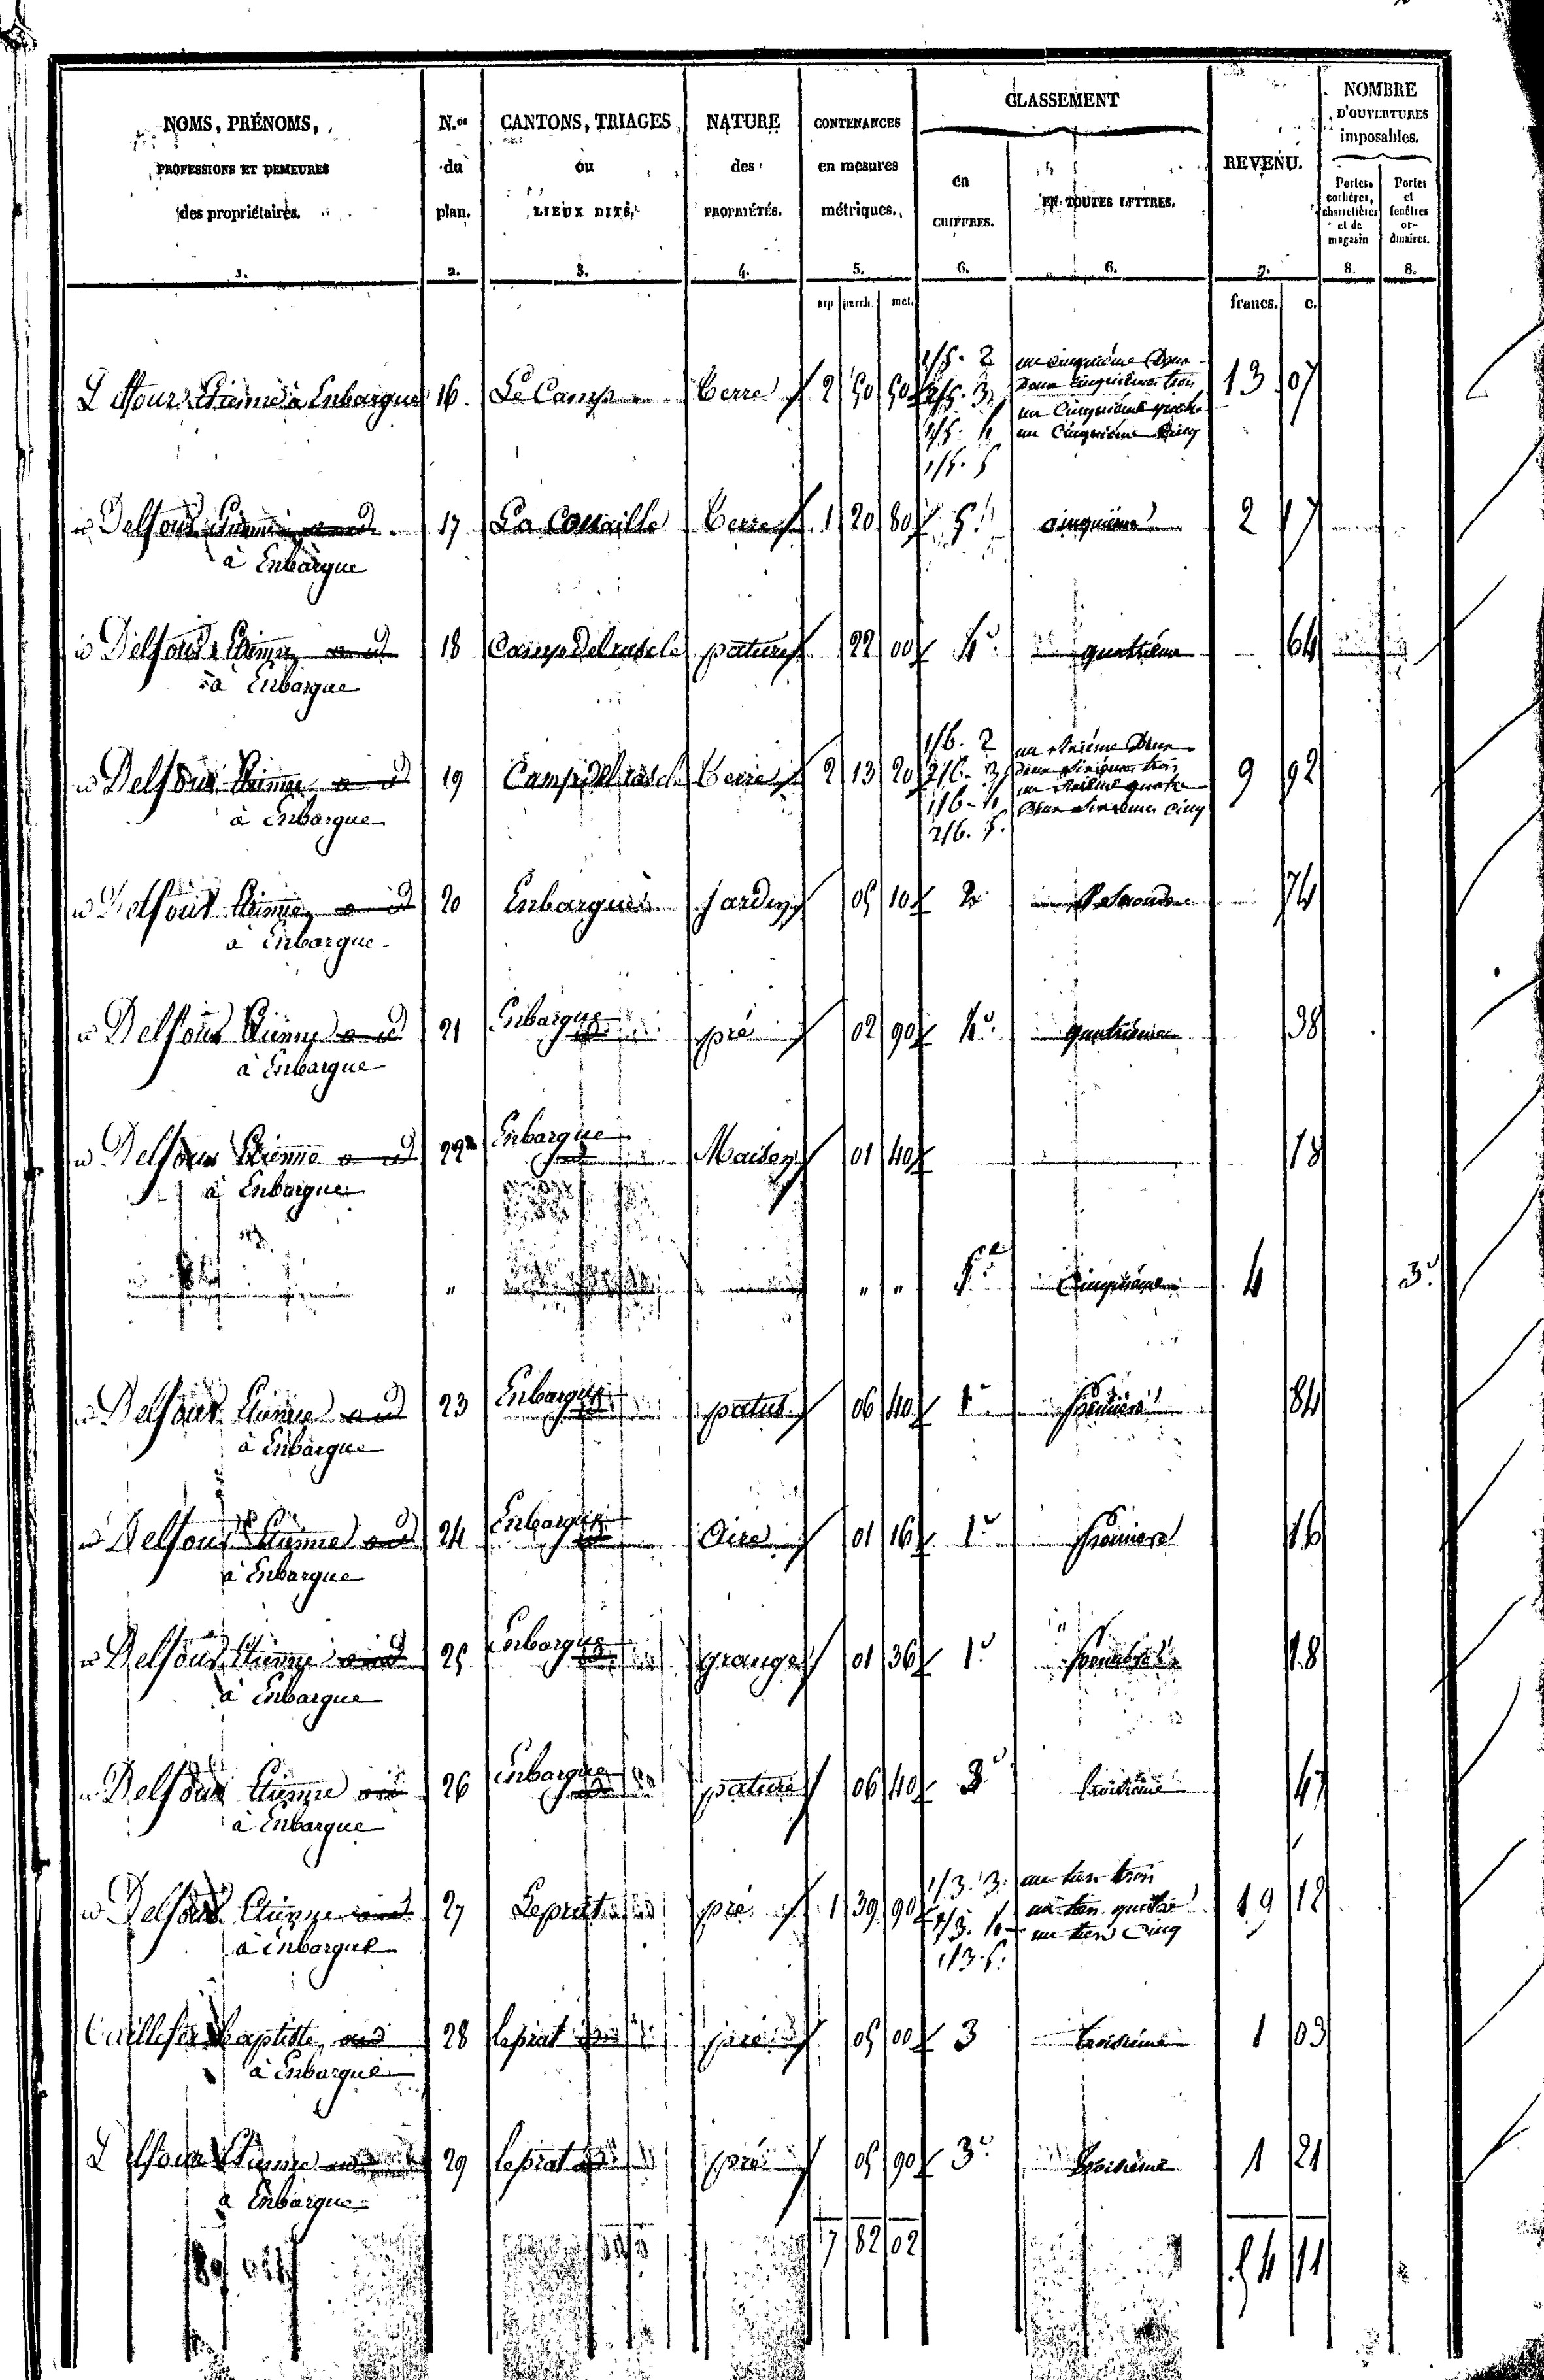 NOMS, PRÉNOMS, PROFESSIONS ET DEMEURES des propriétaires. N.os du plan. CANTONS, TRIAGES ou LIEUX DITS. NATURE des PROPRIÉTÉS. CONTENANCES en mesures métriques. CLASSEMENT en CHIFFRES. EN TOUTES LETTRES. REVENU. NOMBRE D'OUVERTURES imposables. Portes cochères, charretières et de magasin Portes et fenêtres or- dinaires.
1. 2. 3. 4. 5. 6. 6. 7. 8. 8.
arp perch. mèt. francs. c.
Delfour Etienne à Enbarque 16. Le Camp Terre 2 50 50 1/5. 2 un cinquième Deux 13 07
2/5. 3 Deux cinquièmes trois
1/5. 4 un Cinquième quatre
1/5. 5 un Cinquième Cinq
Delfour Etienne 17 La Terre 1 20 80 5. cinquième 2 17
à Enbarque
Delfour Etienne 18 pature 22 00 4e quatrième 64
à Enbarque
Delfour Etienne 19 Terre 2 13 20 1/6. 2 un sixième Deux 9 92
à Enbarque 2/6. 3 Deux sixièmes trois
1/6. 4 un sixième quatre
2/6. 5. Deux sixièmes Cinq
Delfour Etienne 20 Enbarque jardin 05 10 2e Seconde 74
à Enbarque
Delfour Etienne 21 Enbarque pré 02 90 4e quatrième 38
à Enbarque
Delfour Etienne 22 Enbarque Maison 01 40 18
à Enbarque
" " " 5e Cinquième 4 3.
Delfour Etienne 23 Enbarque patus 06 40 1e première 84
à Enbarque
Delfour Etienne 24 Enbarque Aire 01 16 1e première 16
à Enbarque
Delfour Etienne 25 Enbarque grange 01 36 1e première 18
à Enbarque
Delfour Etienne 26 Enbarque pature 06 40 3e troisième 47
à Enbarque
Delfour Etienne 27 Leprat pré 1 39 90 1/3. 3. un tiers trois 19 12
à Enbarque 1/3. 4 un tiers quatre
1/3. 5. un tiers Cinq
Baptiste 28 leprat pré 05 00 3 troisième 1 03
à Enbarque
Delfour Etienne 29 leprat pré 05 90 3e troisième 1 21
à Enbarque
7 82 02 54 11